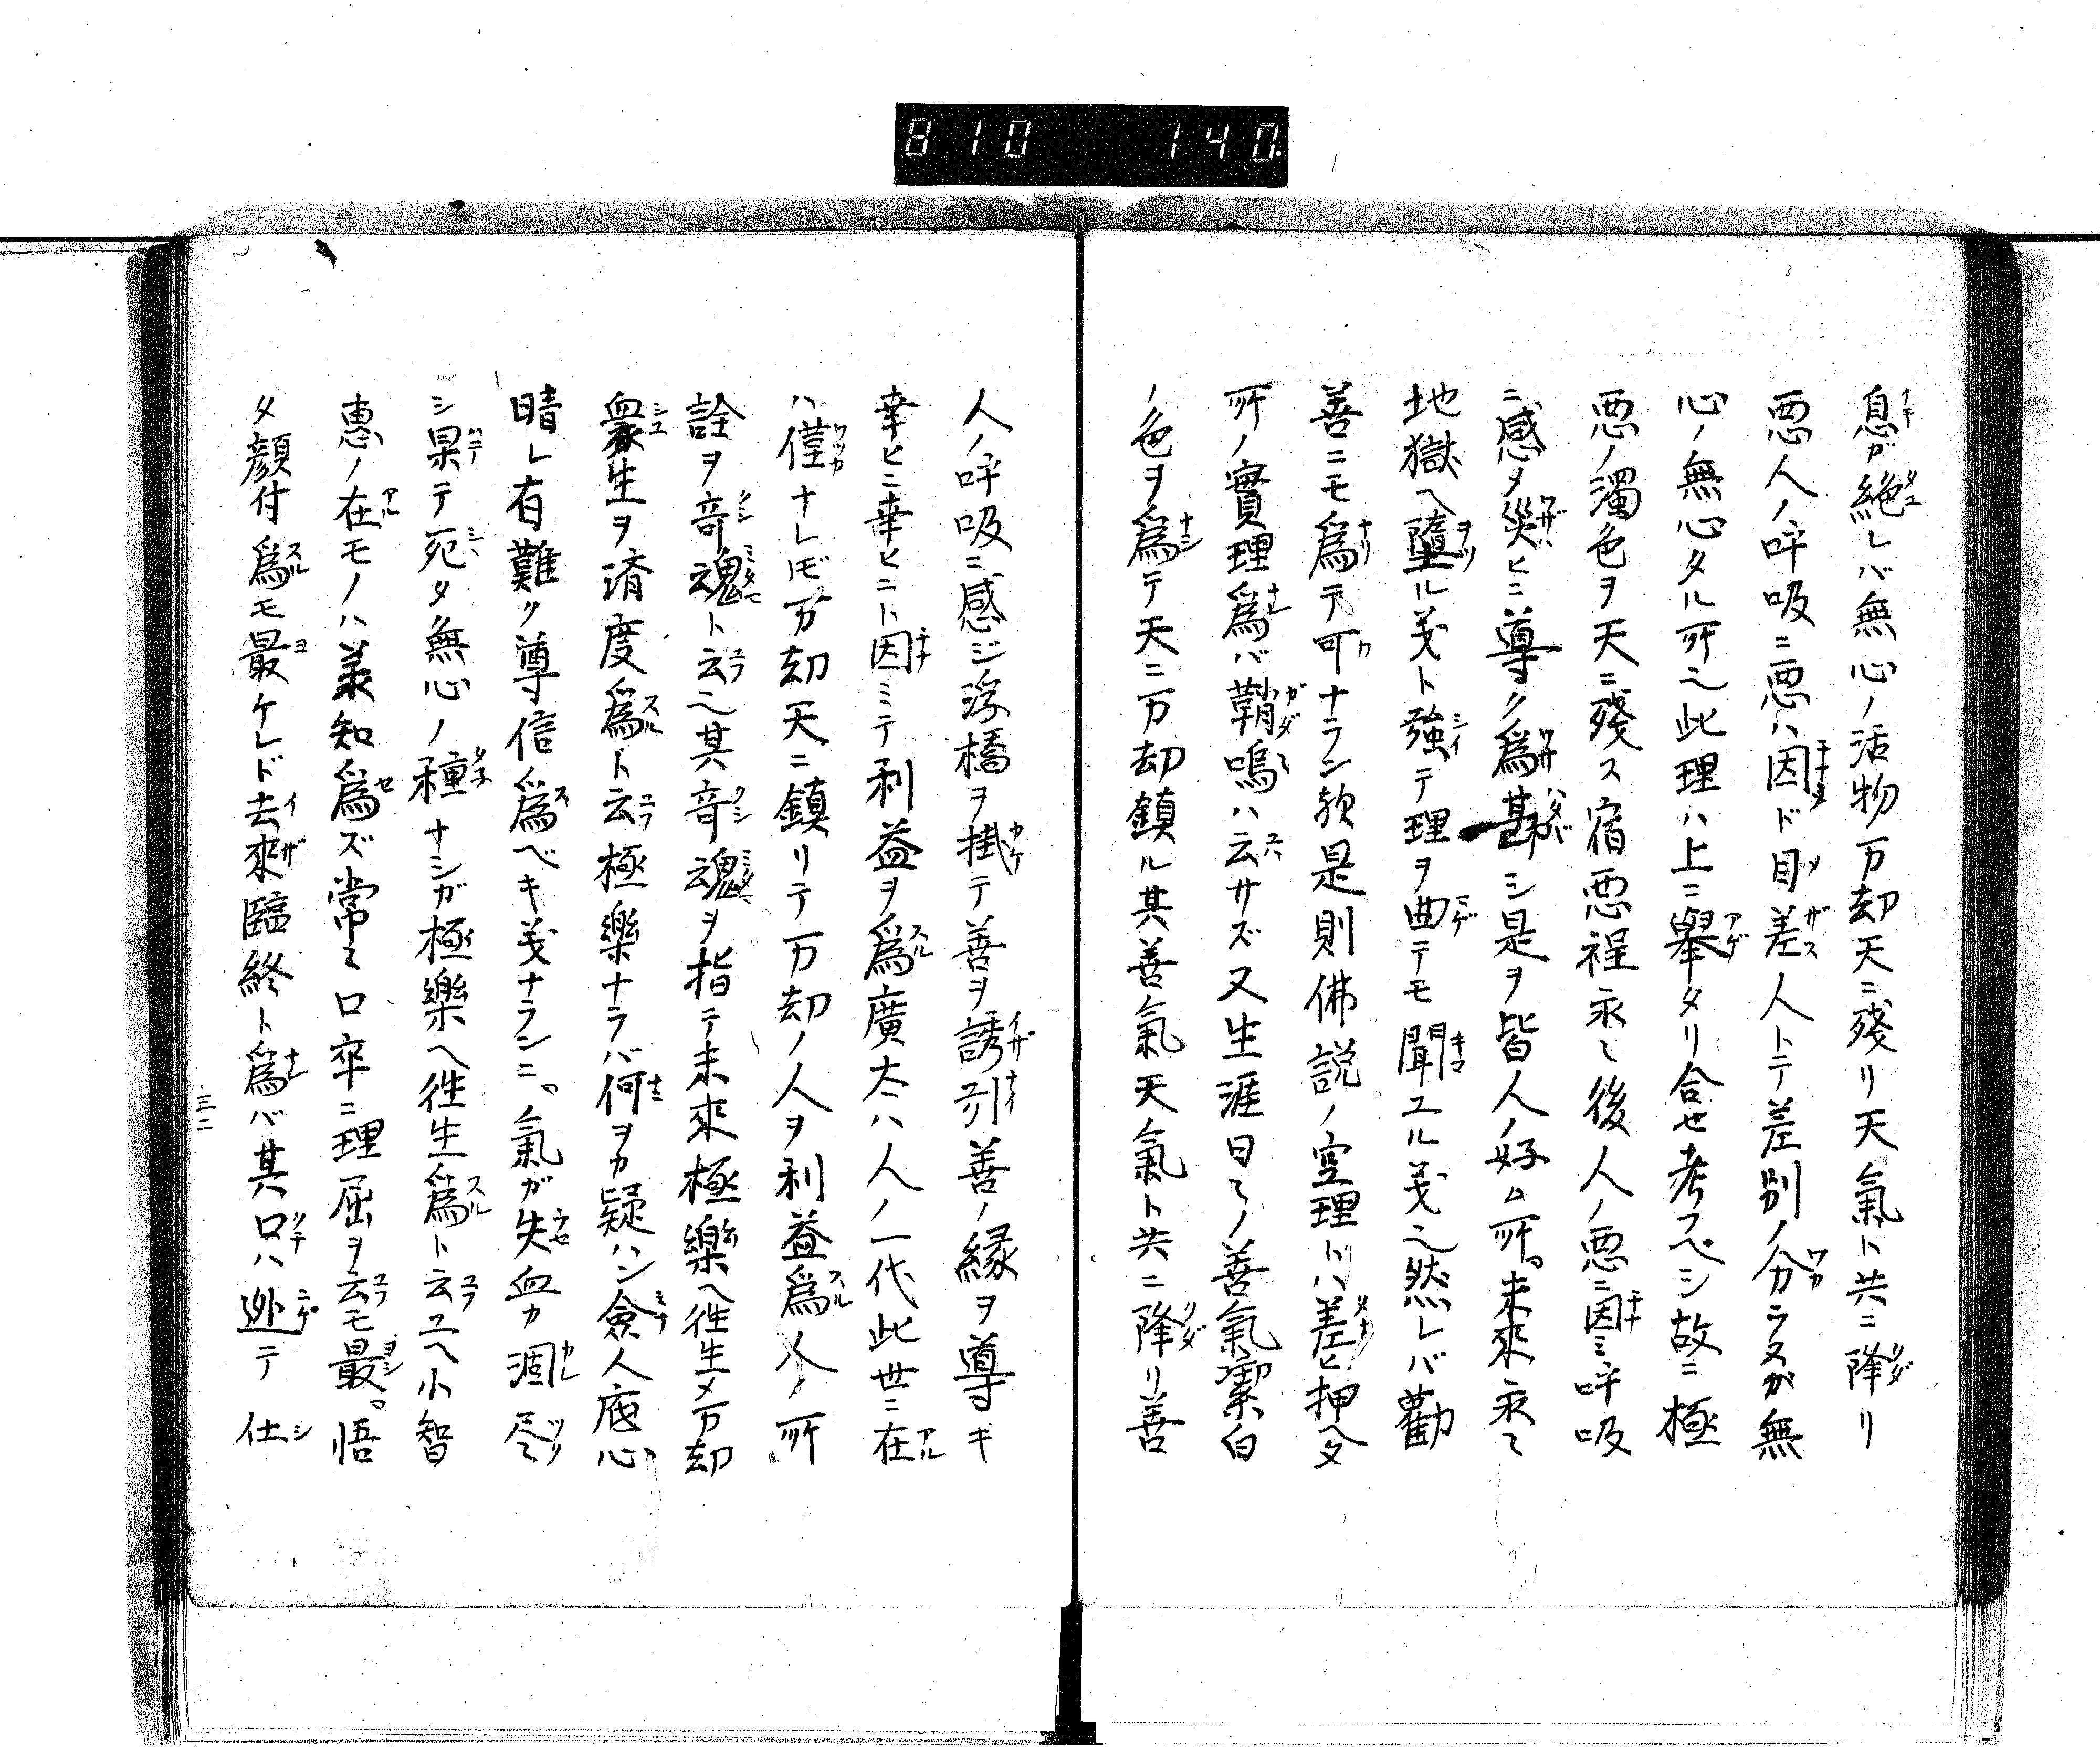 810 140.
息ガ絶レバ無心ノ活物万劫天ニ残リ天氣ト共ニ降リ
悪人ノ呼吸ニ悪ハ因ド目差人トテ差別ノ分ラヌガ無
心ノ無心タル所ヘ此理ハ上ニ擧タリ合セ考フベシ故ニ極
悪ノ濁色ヲ天ニ殘ス宿悪程永々後人ノ悪ニ因ミ呼吸
ニ感タ災ヒニ導ク爲甚シ是ヲ皆人ノ好ム所未來永々
地獄ヘ墮ル義ト強テ理ヲ曲テモ聞ユル義ヘ然レバ勸
善ニモ爲テ可ナラン歟是則佛説ノ空理トハ差ヒ押ヘタ
所ノ實理爲バ鞘嗚ハ云サズ又生涯日々ノ善氣潔白
ノ色ヲ爲テ天ニ万劫鎮ル其善氣天氣ト共ニ降リ善
人ノ呼吸ニ感ジ浮橋ヲ掛テ善ヲ誘引善ノ縁ヲ導キ
幸ヒニ幸ヒニト因ミテ利益ヲ爲廣大ハ人ノ一代此世ニ在
ハ僅ナレ𪜈万劫天ニ鎮リテ万劫ノ人ヲ利益爲人ノ所
詮ヲ竒魂ト云ヘ其竒魂ヲ指テ未來極樂ヘ往生メ万劫
衆生ヲ済度爲ト云極樂ナラバ何ヲカ疑ハン僉人底心
晴レ有難ク尊信爲ベキ義ナランニ氣ガ失血カ涸尽
シ果テ死タ無心ノ種ナシガ極樂ヘ往生爲ト云ユヘ小智
惠ノ在モノハ羕知爲ズ常々口卒ニ理屈ヲ云モ最悟
タ顔付爲モ最ケレド去來臨終ト爲バ其口ハ迯テ仕
三二